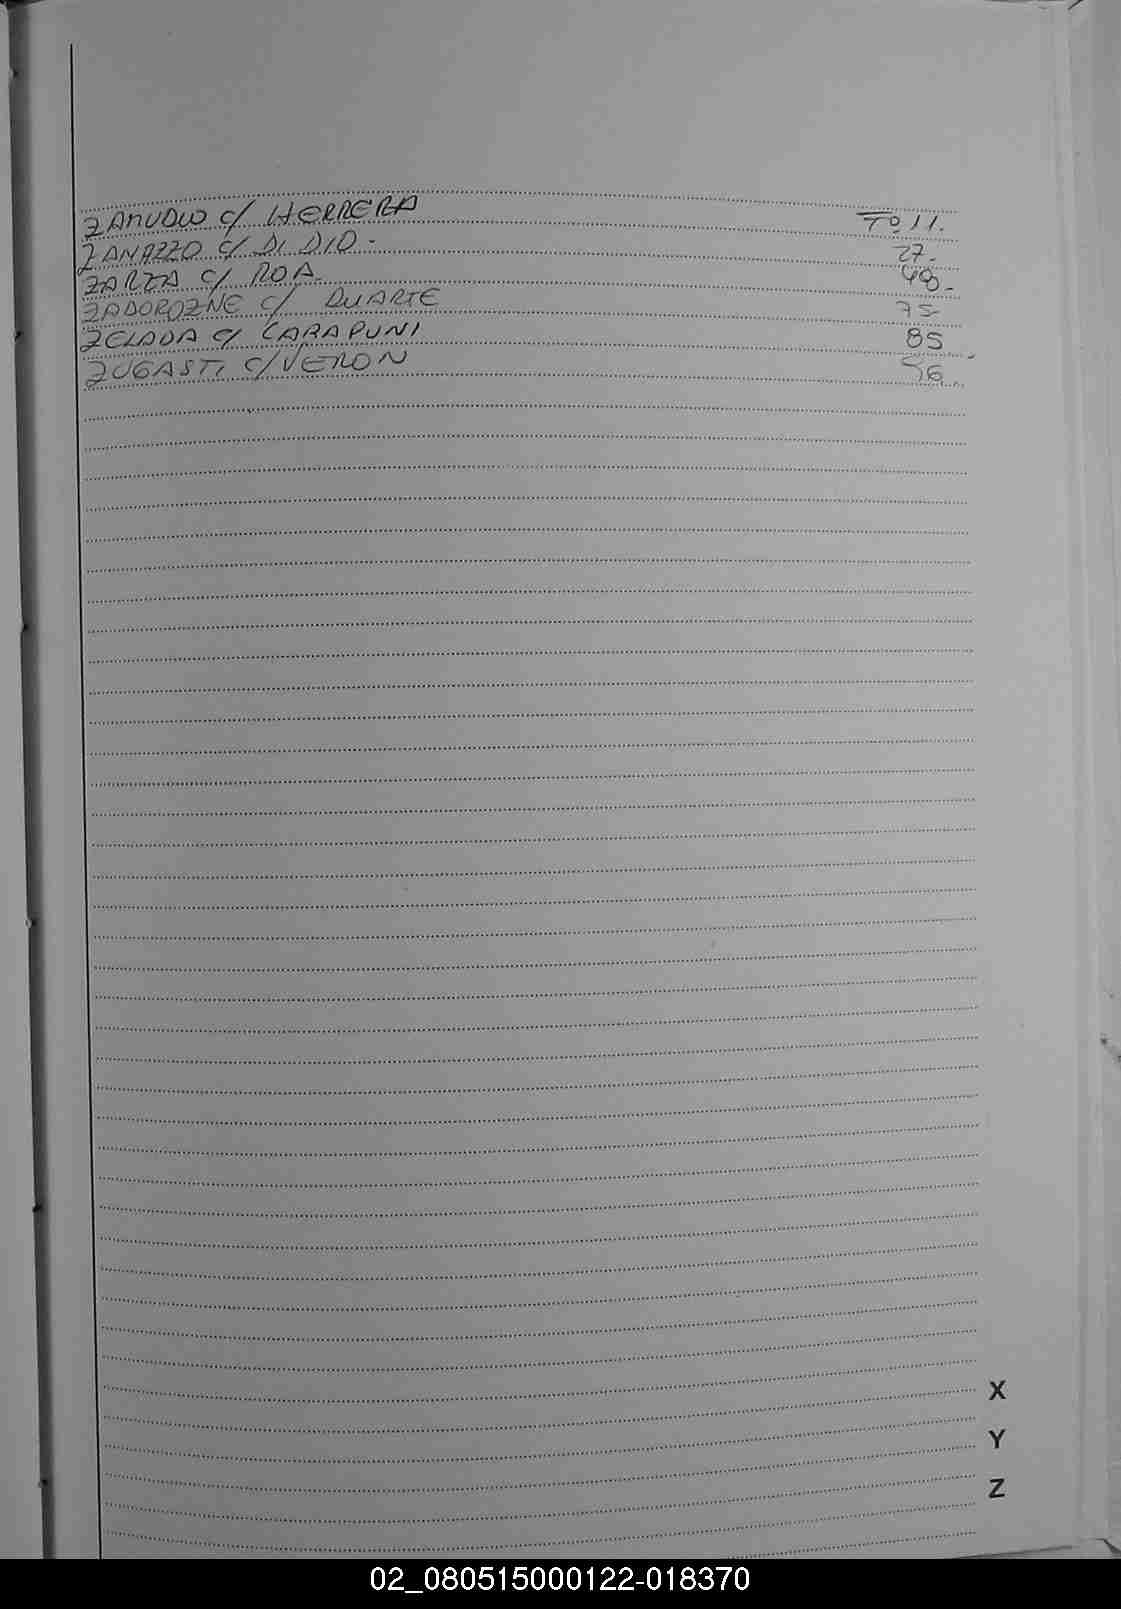 ZAMUDIO c/ HERRERA Fº 11.
ZANAZZO c/ DI DIO. 27.
ZARZA c/ ROA. 48.
ZADOROZNE c/ DUARTE 75
ZELADA c/ CARAPUNI 85
ZUGASTI c/ VERON 56
X
Y
Z
02_080515000122-018370